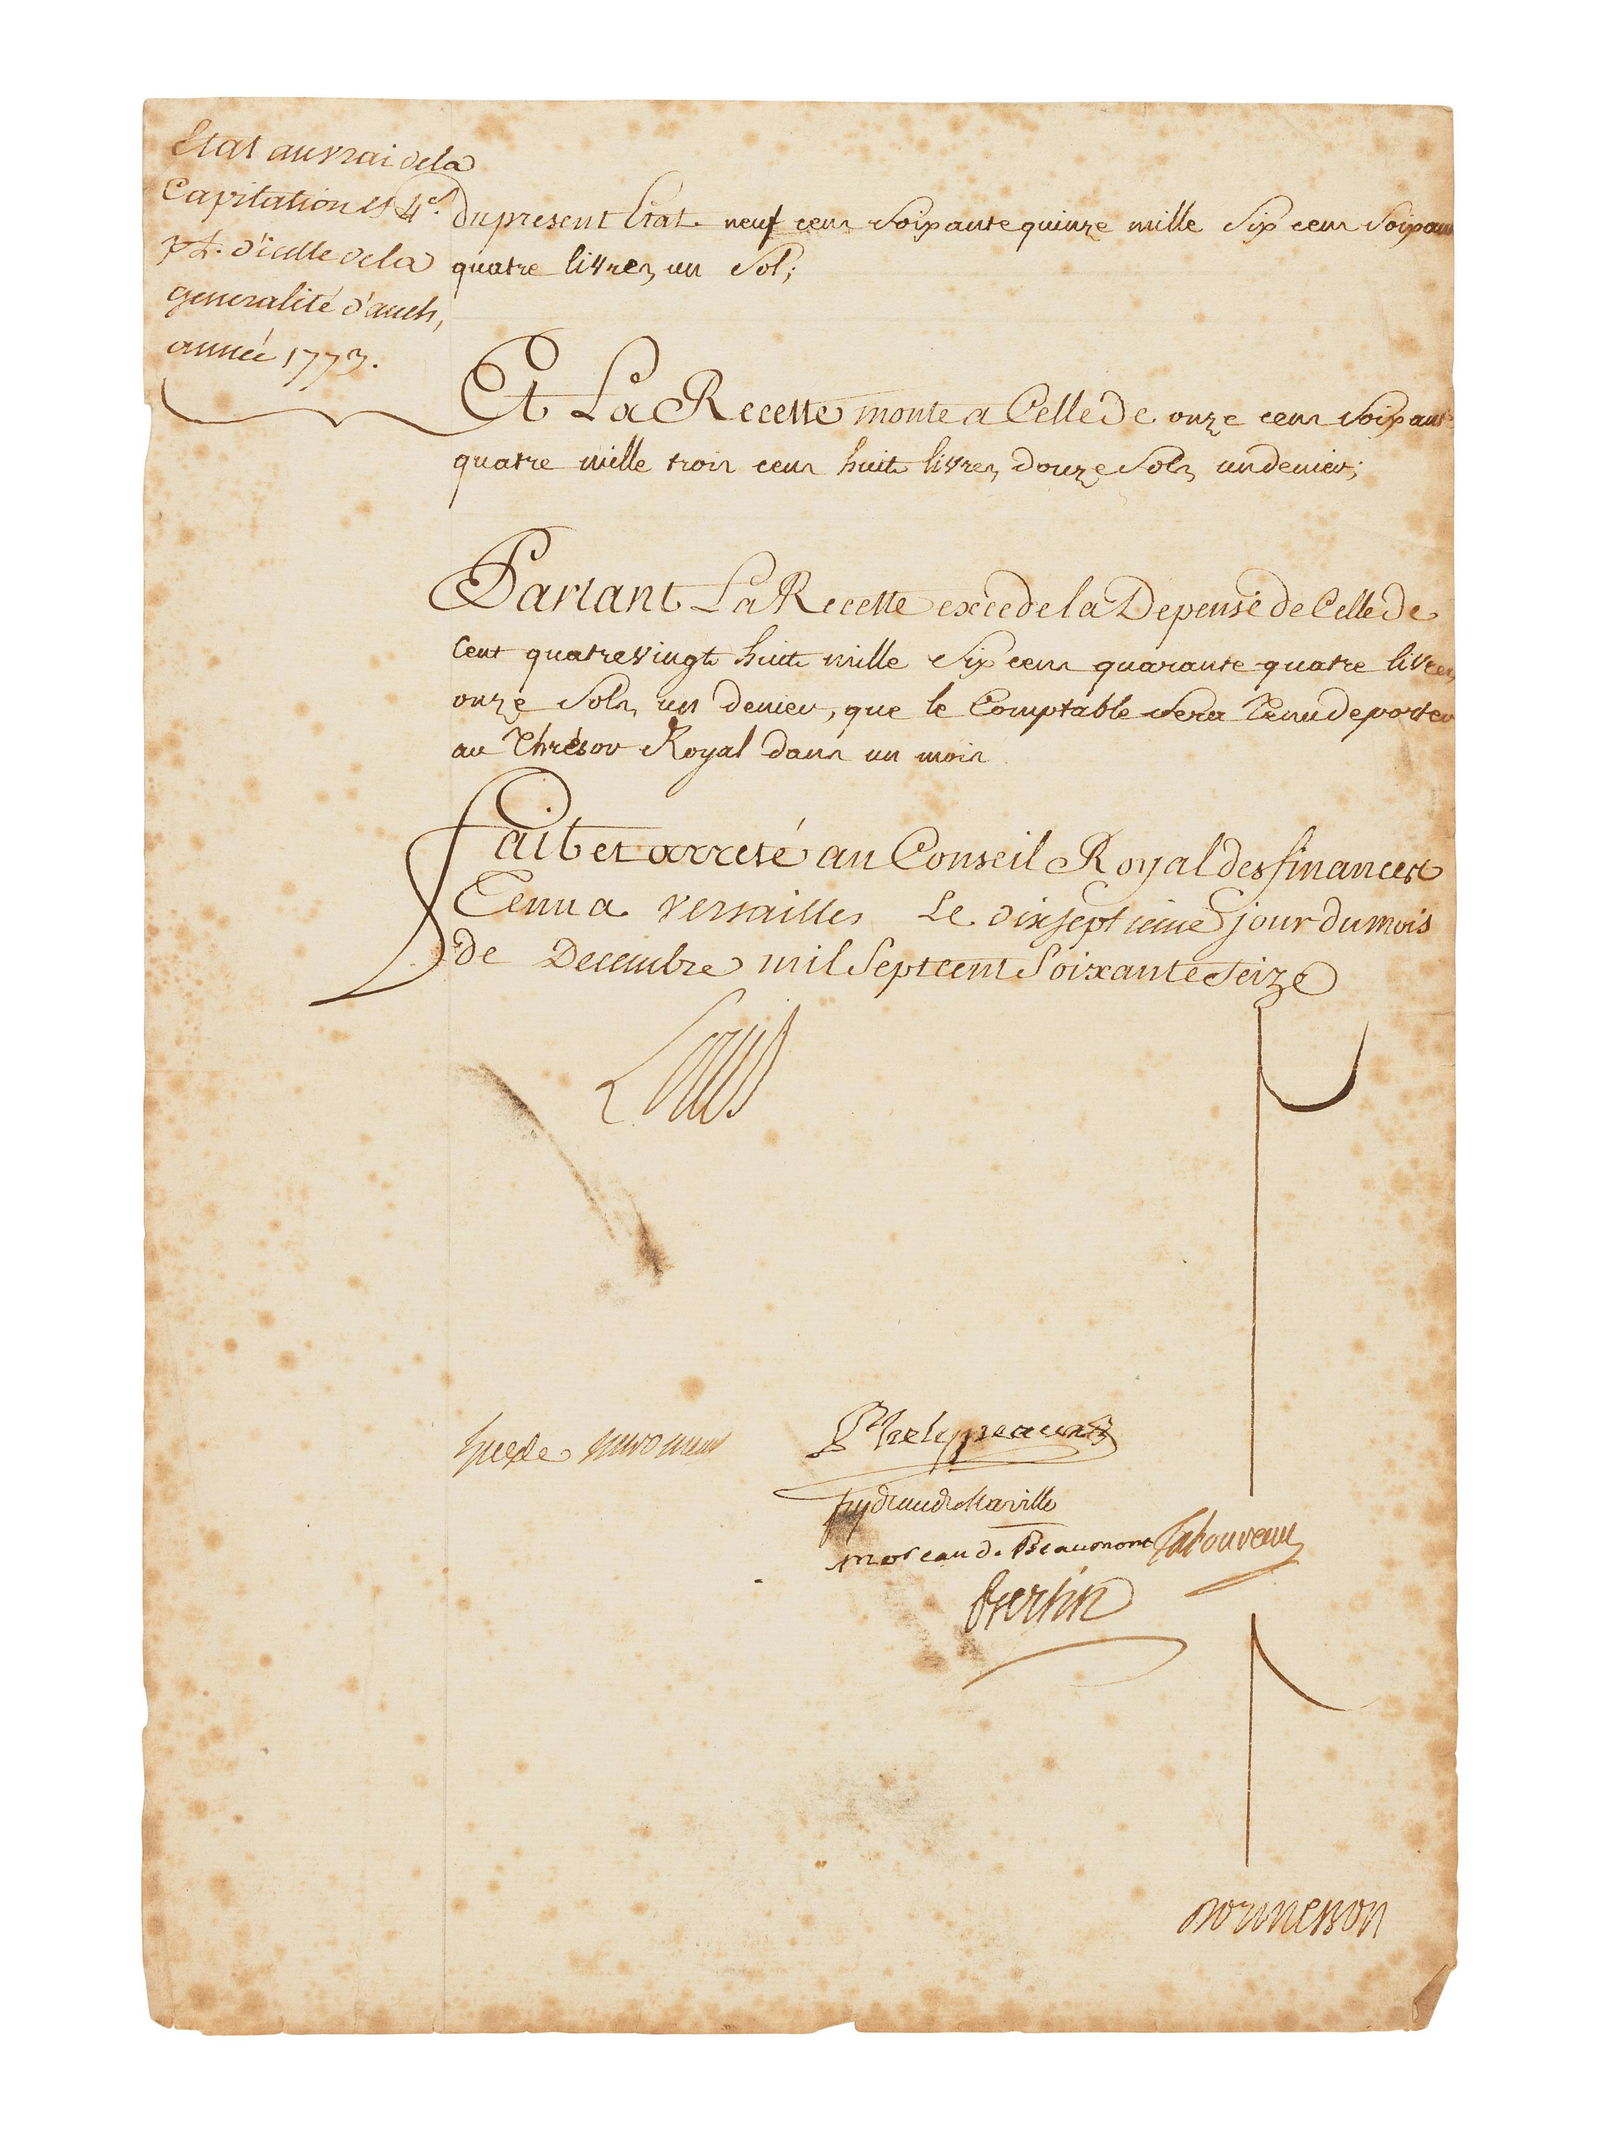 Etat au vrai de la
Capitation et 4.e
pt. d'icelle de la
generalité d'auch,
année 1773.
du present Etat neuf cens soixante quinze mille six cens soixante
quatre livres, un sol;
Et La Recette monte a Celle de onze cens soixante
quatre mille trois cens huit livres, douze sols, un denier;
Partant La Recette excede la Depense de Celle de
cent quatrevingt huit mille six cens quarante quatre livres,
onze sols, un denier, que le Comptable sera Tenu de porter
au Thrésor Royal dans un mois
Fait et arresté au Conseil Royal des finances
Tenu a versailles Le dixseptieme jour du mois
de Decembre mil Sept cent Soixante Seize
Louis
hue de miromenil
Phelypeaux
feydeau de Marville
moreau de Beaumont Taboureau
Bertin
dormesson